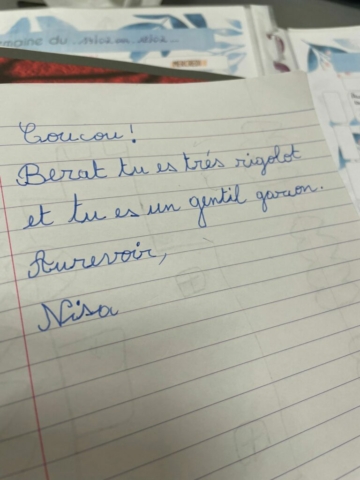 maine du
MERCREDI
Coucou!
Berat tu es trés rigolot
et tu es un gentil garcon.
Aurevoir,
Nisa